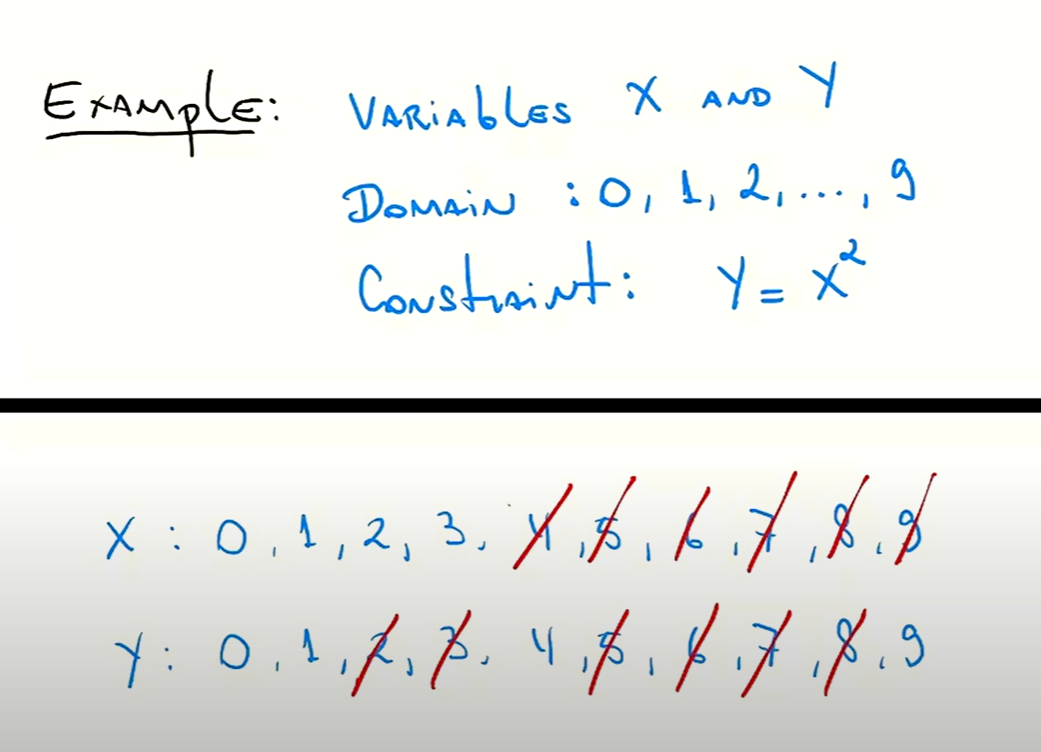 Example: Variables X and Y
Domain : 0, 1, 2, ..., 9
Constraint: Y = X²
X : 0, 1, 2, 3, 4, 5, 6, 7, 8, 9
Y : 0, 1, 2, 3, 4, 5, 6, 7, 8, 9